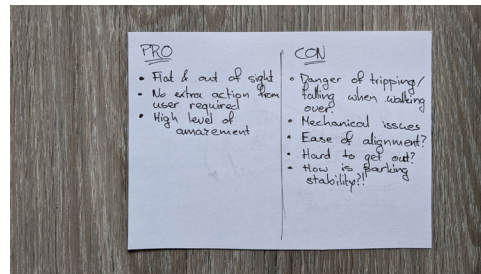 PRO
• Flat & out of sight
• No extra action from
user required
• High level of
amazement
CON
• Danger of tripping/
falling when walking
over.
• Mechanical issues
• Ease of alignment?
• Hard to get out?
• How is parking
stability?!